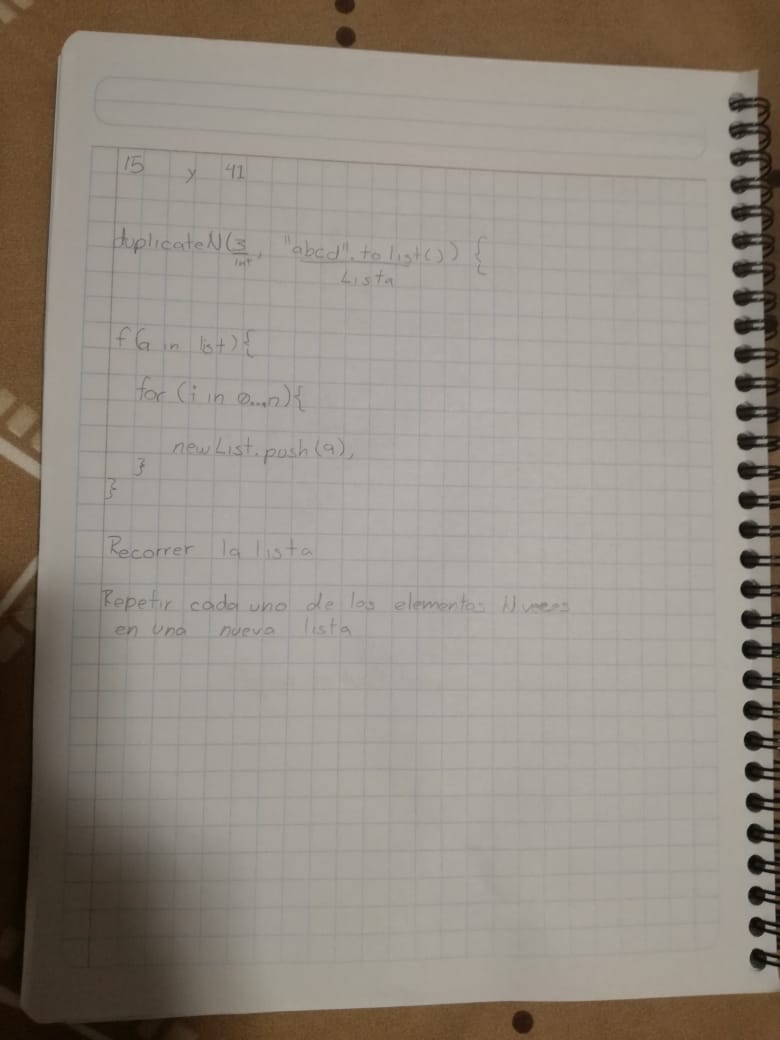 15 y 41
duplicateN(3, "abcd".to list()) {
int Lista
f(a in list){
for (i in 0...n){
newList.push(a),
}
}
Recorrer la lista
Repetir cada uno de los elementos N veces
en una nueva lista